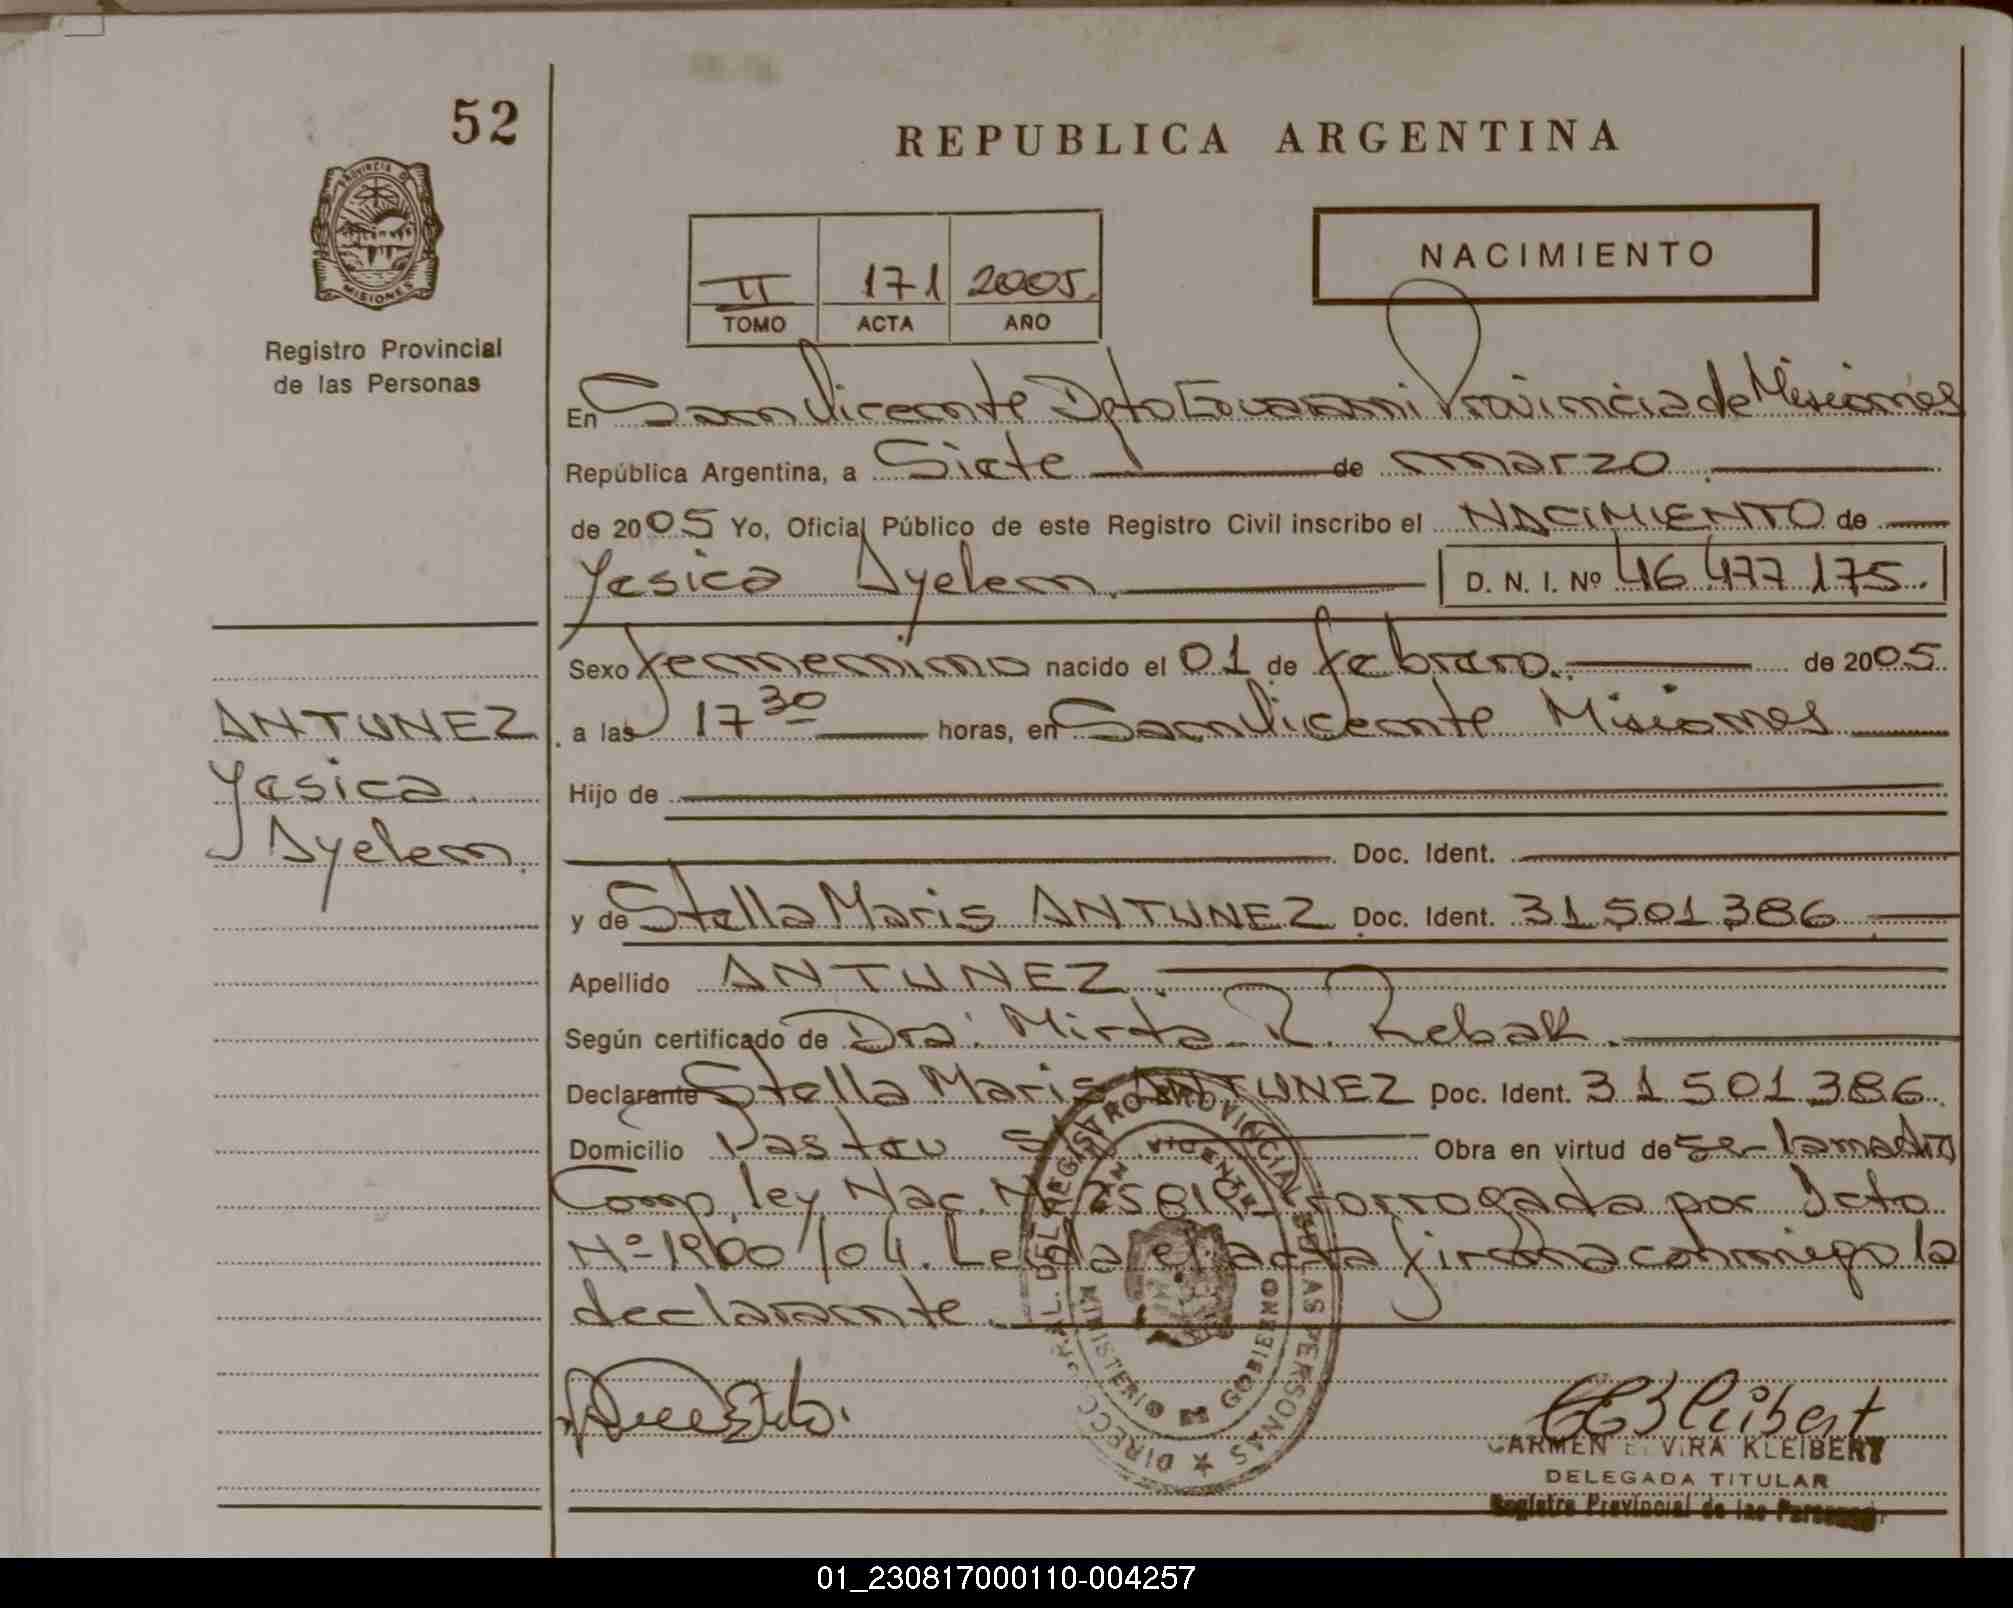 52
REPUBLICA ARGENTINA
PROVINCIA D
MISIONES
NACIMIENTO
II 171 2005.
TOMO ACTA AÑO
Registro Provincial
de las Personas
En San Vicente Dpto Guarani Provincia de Misiones
República Argentina, a Siete de marzo
de 2005 Yo, Oficial Público de este Registro Civil inscribo el NACIMIENTO de
Yesica Ayelen. D. N. I. Nº 46 477 175.
Sexo femenino nacido el 01 de febrero. de 2005.
ANTUNEZ
Yesica
Ayelen.
a las 17 30 horas, en San Vicente Misiones
Hijo de
Doc. Ident.
y de Stella Maris ANTUNEZ Doc. Ident. 31 501 386
Apellido ANTUNEZ.
Según certificado de Dra. Mirta R. Rebak.
Declarante Stella Maris ANTUNEZ Doc. Ident. 31 501 386.
Domicilio Obra en virtud de ser la madre
Comp. ley Nac. Nº 25819 Prorrogada por Dcto
Nº 1900/04. Leida el acta firma conmigo la
declarante.
DIRECC GRAL. DEL REGISTRO PROVINCIAL DE LAS PERSONAS
SAN VICENTE
MINISTERIO GOBIERNO
CEKleibert
CARMEN ELVIRA KLEIBERT
DELEGADA TITULAR
Registro Provincial de las Personas
01_230817000110-004257